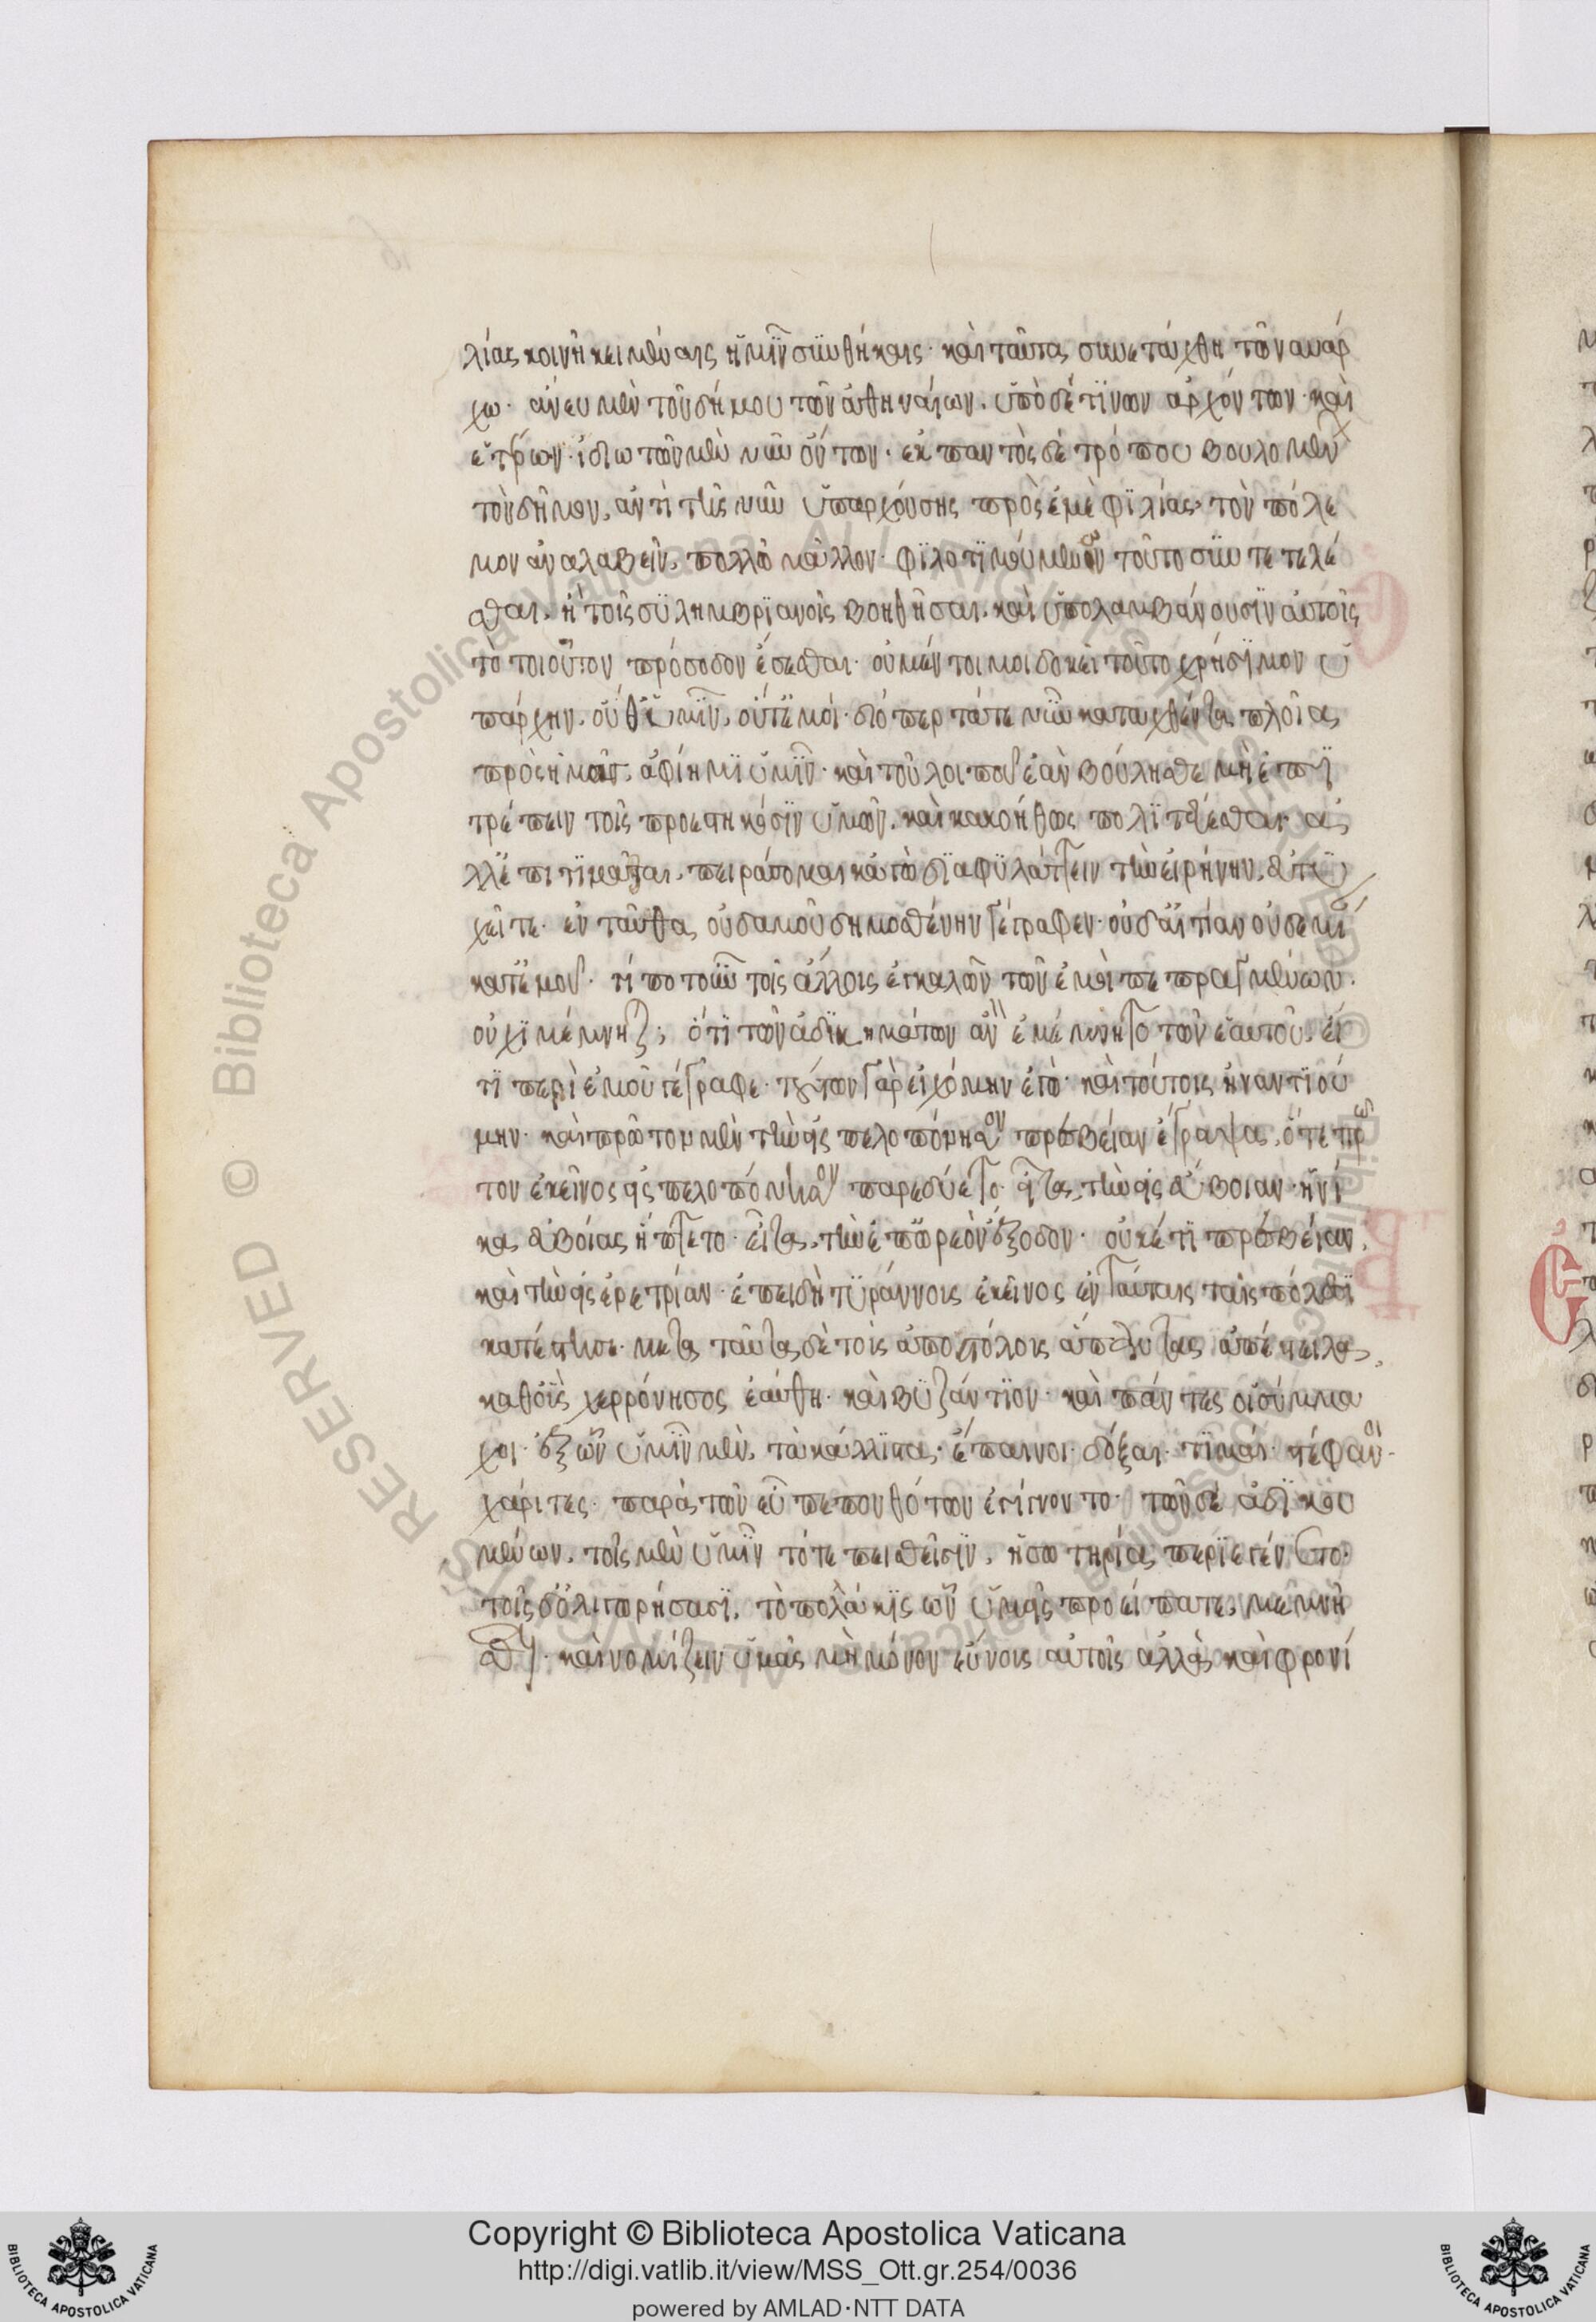 λίας κοινῆ κειμέναις ἡμῖν συνθήκαις· καὶ ταῦτα συνετάχθη τῶ ναυάρ
χω· ἄνευ μὲν τοῦ δήμου τῶν ἀθηναίων, ὑπὸ δέ τινων ἀρχόντων· καὶ
ἑτέρων· ἰδιωτῶν μὲν νῦν ὄντων· ἐκ παντὸς δὲ τρόπου βουλομέν
τὸν δῆμον, ἀντὶ τῆς νῦν ὑπαρχούσης πρὸς ἐμὲ φιλίας, τὸν πόλε
μον ἀναλαβεῖν, πολλῶ μᾶλλον· φιλοτιμούμενον τοῦτο συντετελέ
σθαι, ἢ τοῖς συλημβριανοῖς βοηθῆσαι, καὶ ὑπολαμβάνουσιν αὑτοῖς
τὸ τοιοῦτον πρόσοδον ἔσεσθαι· οὐ μέντοι μοι δοκεῖ τοῦτο χρήσιμον ὑ
πάρχην, οὔθ' ὑμῖν, οὔτ' ἐμοί· διόπερ τά τε νῦν καταχθέντα πλοῖα
πρὸς ἡμᾶς, ἀφίημι ὑμῖν· καὶ τοῦ λοιποῦ ἐὰν βούλησθε μὴ ἐπι
τρέπειν τοῖς προεστηκόσιν ὑμῶν, κακοήθως πολιτεύεσθαι· ἀ
λλ' ἐπιτιμᾶται, πειράσομαι κἀγὼ διαφυλάττειν τὴν εἰρήνην, εὐτυ
χεῖτε· ἐνταῦθα οὐδαμοῦ δημοσθένην γέγραφεν· οὐδ' αἰτίαν οὐδεμί
κατ' ἐμοῦ· τί ποτ' οὖν τοῖς ἄλλοις ἐγκαλῶν τῶν ἐμοὶ πεπραγμένων·
οὐχὶ μέμνηται; ὅτι τῶν ἀδικημάτων ἂν ἐμέμνητο τῶν ἑαυτοῦ, εἴ
τι περὶ ἐμοῦ γέγραφε· τούτων γὰρ εἰχόμην ἐγώ· καὶ τούτοις ἠναντιού
μην· καὶ πρῶτον μὲν τὴν εἰς πελοπόννησον πρεσβείαν ἔγραψα, ὅτε πρ
τον ἐκεῖνος εἰς πελοπόννησον παρεδύετο· εἶτα, τὴν εἰς εὔβοιαν· ἡνί
κα εὐβοίας ἥπτετο· εἶτα, τὴν ἐπ' ὠρεὸν ἔξοδον· οὐκέτι πρεσβείαν,
καὶ τὴν εἰς ἐρετρίαν· ἐπειδὴ τυράννους ἐκεῖνος ἐν ταύταις ταῖς πόλεσι
κατέστησε· μετὰ ταῦτα δὲ τοὺς ἀποστόλους ἅπαντας ἀπέστειλα,
καθ' οὓς χερρόνησος ἐσώθη· καὶ βυζάντιον· καὶ πάντες οἱ σύμμα
χοι· ἐξ ὧν ὑμῖν μὲν, τὰ κάλλιστα, ἔπαινοι· δόξαι· τιμαί· στέφανοι·
χάριτες· παρὰ τῶν εὖ πεπονθότων ἐγίγνοντο· τῶν δὲ ἀδικου
μένων, τοῖς μὲν ὑμῖν τότε πεισθεῖσιν, ἡ σωτηρία περιεγένετο·
τοῖς δ' ὀλιγωρήσασι, τὸ πολάκις ὧν ὑμεῖς προείπατε, μεμνῆ
σθαι· καὶ νομίζειν ὑμᾶς μὴ μόνον εὔνους αὐτοῖς ἀλλὰ καὶ φρονί
Copyright © Biblioteca Apostolica Vaticana
http://digi.vatlib.it/view/MSS_Ott.gr.254/0036
powered by AMLAD·NTT DATA